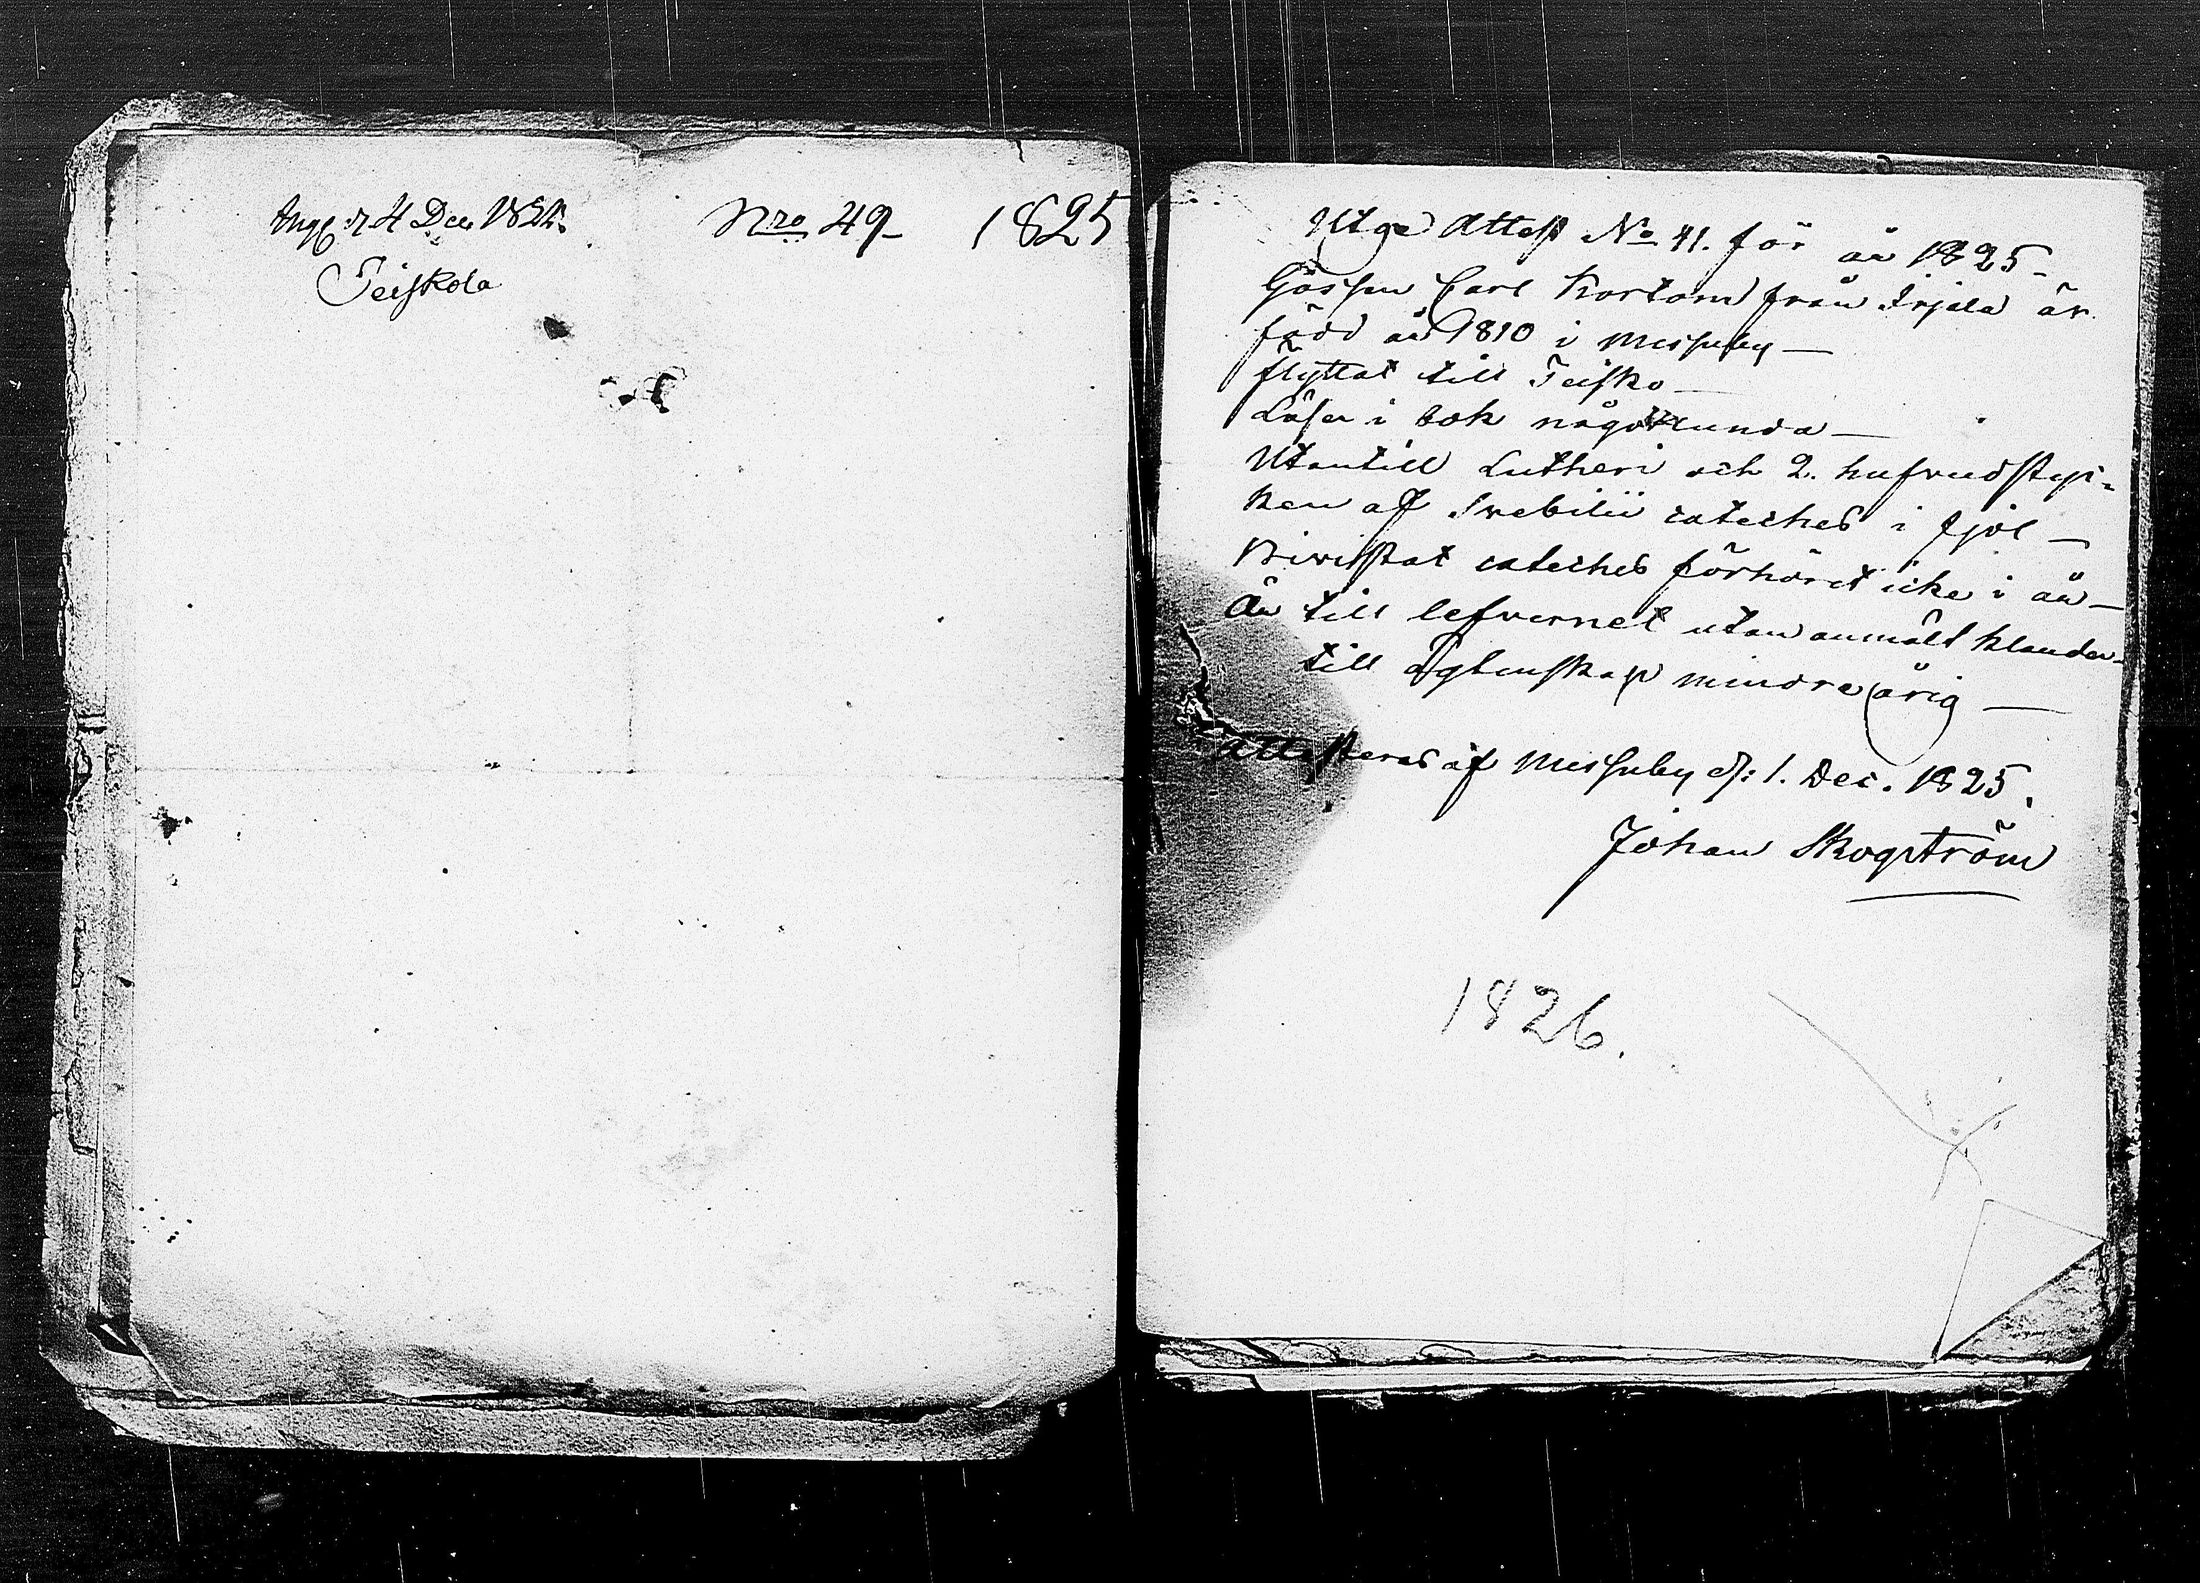 Ingf d 4 Dec 1825.
Teiskola
Nro 49
1825
Utge Attest No 41. för år 1825
Gossen Carl Kortom från Irjala är
född år 1810 i Messuby —
flyttat till Teisko —
Läser i bok någorlunda —
Utantill Lutheri och 2. hufvudstyc-
ken af Svebilii cateches i fjol —
Bivistat cateches förhöret icke i år —
Är till lefvernet utan anmält klander —
till ägtenskap minderårig —
Attesteras af Messuby d: 1. Dec. 1825.
Johan Skogström
1826.